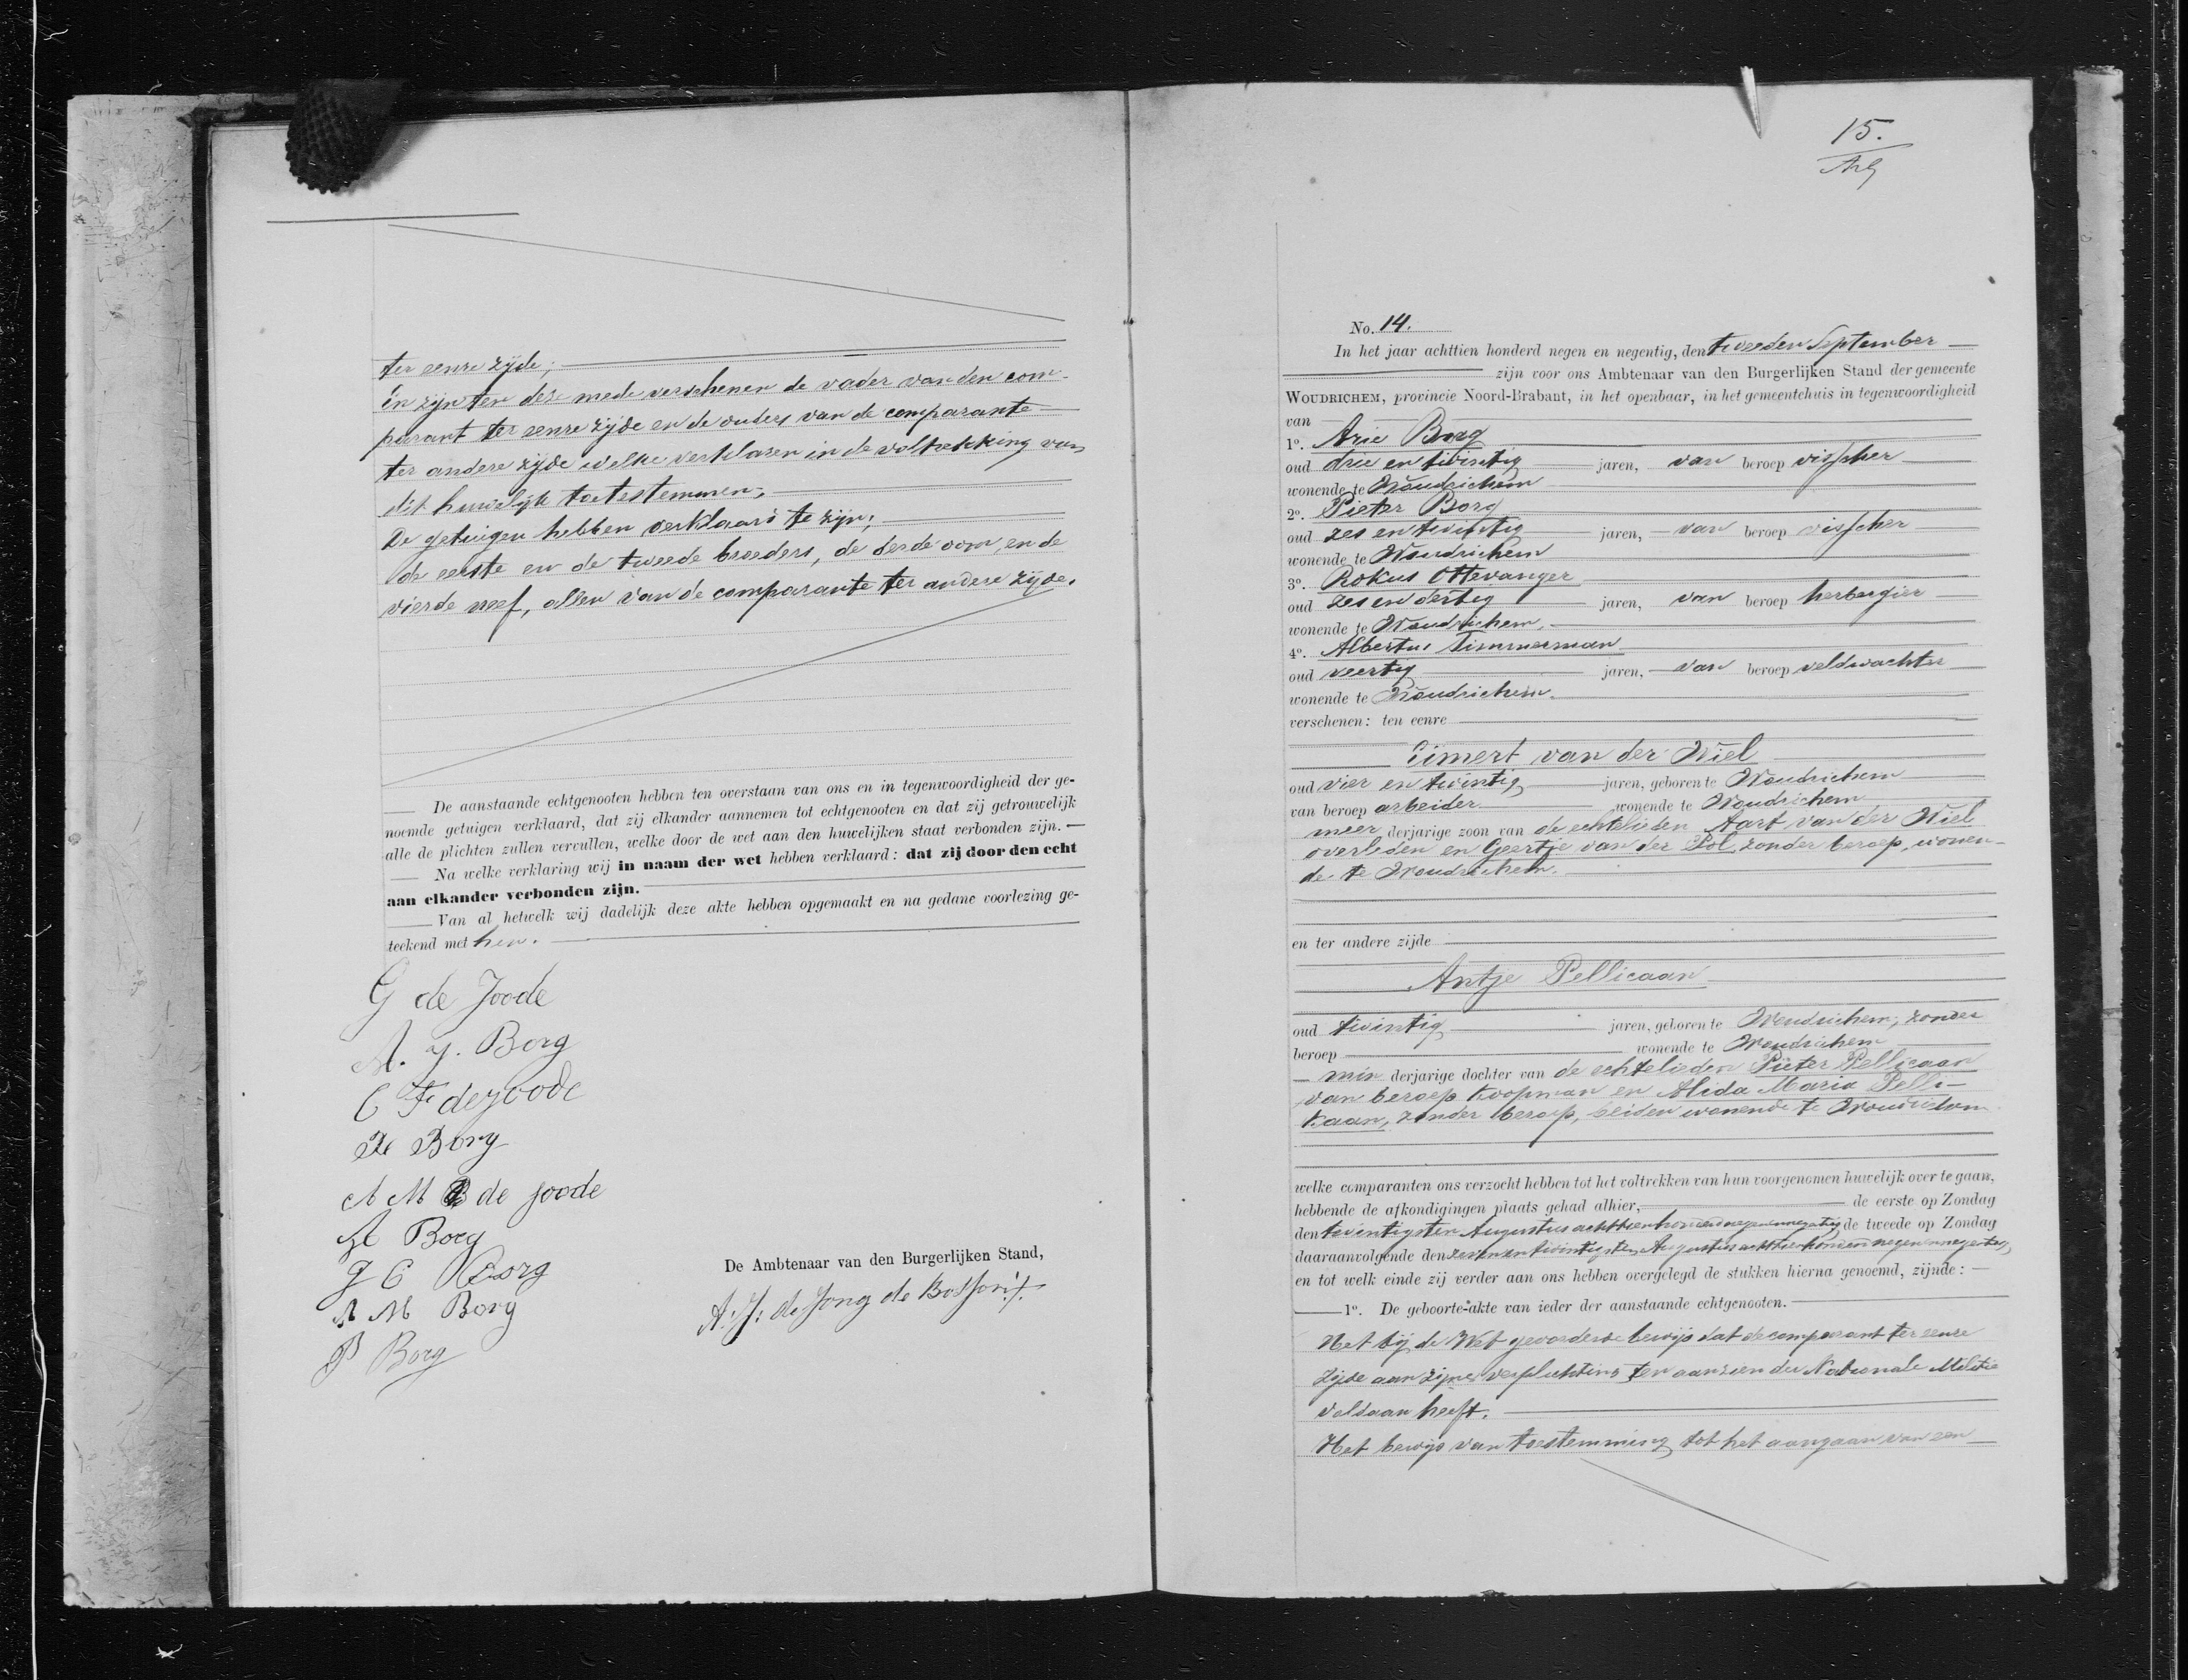 ter eenre zijde;
En zijn ter deze mede verschenen de vader van den com-
parant ter eenre zijde en de ouders van de comparante
ter andere zijde welke verklaren in de voltrekking van
dit huwelijk toetestemmen;
De getuigen hebben verklaard te zijn;
de eerste en de tweede broeders, de derde oom, en de
vierde neef, allen van de comparante ter andere zijde.
De aanstaande echtgenooten hebben ten overstaan van ons en in tegenwoordigheid der ge-
noemde getuigen verklaard, dat zij elkander aannemen tot echtgenooten en dat zij getrouwelijk
alle de plichten zullen vervullen, welke door de wet aan den huwelijken staat verbonden zijn.
Na welke verklaring wij in naam der wet hebben verklaard: dat zij door den echt
aan elkander verbonden zijn.
Van al hetwelk wij dadelijk deze akte hebben opgemaakt en na gedane voorlezing ge-
teekend met hen.
G de Joode
A. J. Borg
C F de Joode
Borg
A M B de Joode
A Borg
J C Borg
A M Borg
P Borg
De Ambtenaar van den Burgerlijken Stand,
de Jong de
15.
No. 14.
In het jaar achttien honderd negen en negentig, den tweeden September
zijn voor ons Ambtenaar van den Burgerlijken Stand der gemeente
WOUDRICHEM, provincie Noord-Brabant, in het openbaar, in het gemeentehuis in tegenwoordigheid
van
1o. Arie Borg
oud drie en twintig jaren, van beroep visscher
wonende te Woudrichem
2o. Pieter Borg
oud zes en twintig jaren, van beroep visscher
wonende te Woudrichem
3o. Rokus Ottevanger
oud zes en dertig jaren, van beroep herbergier
wonende te Woudrichem.
4o. Albertus Timmerman
oud veertig jaren, van beroep veldwachter
wonende te Woudrichem.
verschenen: ten eenre
Eimert van der Wiel
oud vier en twintig jaren, geboren te Woudrichem
van beroep arbeider wonende te Woudrichem
meer derjarige zoon van de echtelieden Aart van der Wiel
overleden en Geertje van der Pol, zonder beroep, wonen-
de te Woudrichem.
en ter andere zijde
Antje Pellicaan
oud twintig jaren, geboren te Woudrichem, zonder
beroep wonende te Woudrichem
min derjarige dochter van de echtelieden Pieter Pellicaan
van beroep koopman en Alida Maria Pelli-
kaan, zonder beroep, beiden wonende te Woudrichem
welke comparanten ons verzocht hebben tot het voltrekken van hun voorgenomen huwelijk over te gaan,
hebbende de afkondigingen plaats gehad alhier, de eerste op Zondag
den twintigsten Augustus achttienhonderd negenennegentig de tweede op Zondag
daaraanvolgende den zevenentwintigsten Augustus achttienhonderd negenennegentig
en tot welk einde zij verder aan ons hebben overgelegd de stukken hierna genoemd, zijnde:
1o. De geboorte-akte van ieder der aanstaande echtgenooten.
Het bij de Wet gevorderde bewijs dat de comparant ter eenre
zijde aan zijne verplichting ten aanzien der Nationale Militie
voldaan heeft.
Het bewijs van toestemming tot het aangaan van een